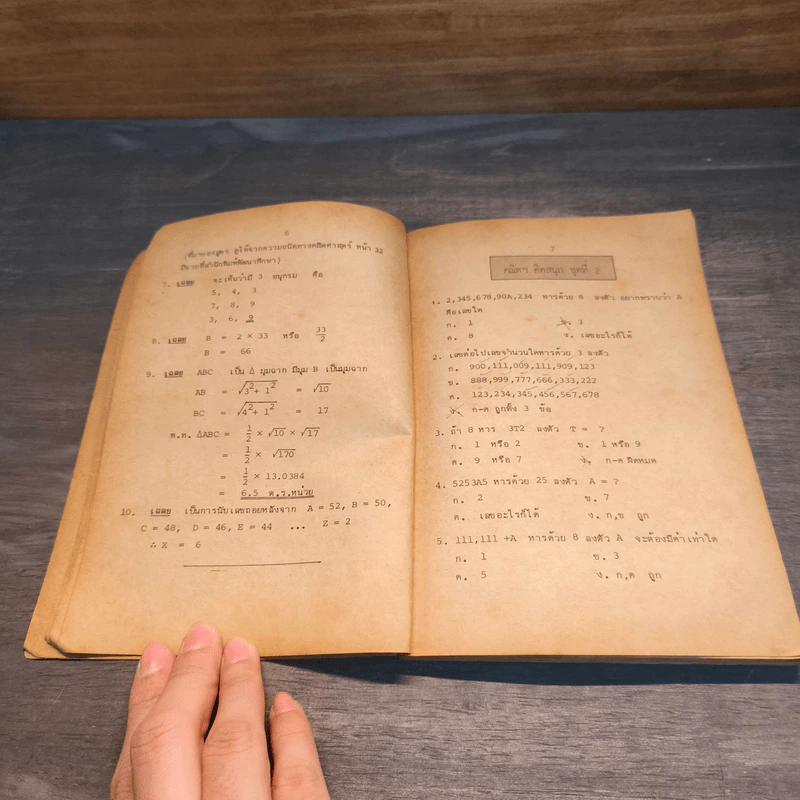 6
(ที่มาของสูตร ดูได้จากความถนัดทางคณิตศาสตร์ หน้า 32
มีขายที่สำนักพิมพ์พัฒนาศึกษา)
7. เฉลย จะเห็นว่ามี 3 อนุกรม คือ
5, 4, 3
7, 8, 9
3, 6, 9
8. เฉลย B = 2 × 33 หรือ 33/2
B = 66
9. เฉลย ABC เป็น Δ มุมฉาก มีมุม B เป็นมุมฉาก
AB = √(3² + 1²) = √10
BC = √(4² + 1²) = 17
พ.ท. ΔABC = 1/2 × √10 × √17
= 1/2 × √170
= 1/2 × 13.0384
= 6.5 ต.ร.หน่วย
10. เฉลย เป็นการนับเลขถอยหลังจาก A = 52, B = 50,
C = 48, D = 46, E = 44 ... Z = 2
∴ X = 6
7
คณิตฯ คิดสนุก ชุดที่ 2
1. 2,345,678,90A,234 หารด้วย 6 ลงตัว อยากทราบว่า A
คือเลขใด
ก. 1 ข. 3
ค. 8 ง. เลขอะไรก็ได้
2. เลขต่อไปเลขจำนวนใดหารด้วย 3 ลงตัว
ก. 900,111,009,111,909,123
ข. 888,999,777,666,333,222
ค. 123,234,345,456,567,678
ง. ก-ค ถูกทั้ง 3 ข้อ
3. ถ้า 8 หาร 3T2 ลงตัว T = ?
ก. 1 หรือ 2 ข. 1 หรือ 9
ค. 9 หรือ 7 ง. ก-ค ผิดหมด
4. 5253A5 หารด้วย 25 ลงตัว A = ?
ก. 2 ข. 7
ค. เลขอะไรก็ได้ ง. ก,ข ถูก
5. 111,111 +A หารด้วย 8 ลงตัว A จะต้องมีค่าเท่าใด
ก. 1 ข. 3
ค. 5 ง. ก,ค ถูก